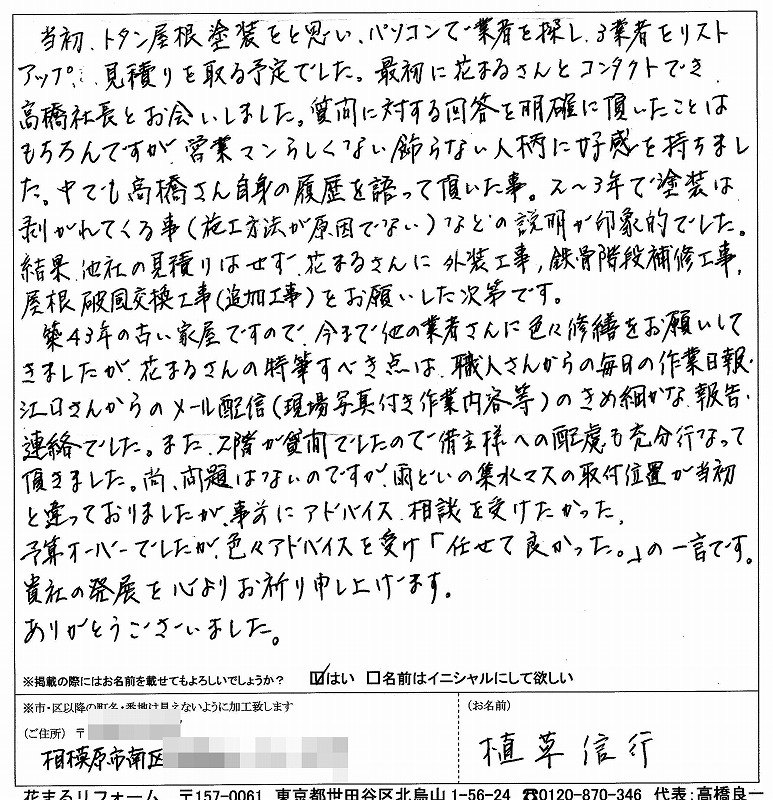 当初、トタン屋根塗装をと思い、パソコンで業者を探し、3業者をリスト
アップ、見積りを取る予定でした。最初に花まるさんとコンタクトでき、
高橋社長とお会いしました。質問に対する回答を明確に頂いたことは
もちろんですが、営業マンらしくない飾らない人柄に好感を持ちまし
た。中でも高橋さん自身の履歴を語って頂いた事。2〜3年で塗装は
剥がれてくる事(施工方法が原因でない)などの説明が印象的でした。
結果、他社の見積りはせず、花まるさんに外装工事,鉄骨階段補修工事,
屋根破風交換工事(追加工事)とお願いした次第です。
築43年の古い家屋ですので、今まで他の業者さんに色々修繕をお願いして
きましたが、花まるさんの特筆すべき点は、職人さんからの毎日の作業日報・
江口さんからのメール配信(現場写真付き作業内容等)のきめ細かな報告・
連絡でした。また、2階が賃間でしたので借主様への配慮も充分行なって
頂きました。尚、問題はないのですが、雨どいの集水マスの取付位置が当初
と違っておりましたが、事前にアドバイス、相談を受けたかった。
予算オーバーでしたが、色々アドバイスを受け「任せて良かった。」の一言です。
貴社の発展を心よりお祈り申し上げます。
ありがとうございました。
※掲載の際にはお名前を載せてもよろしいでしょうか? ☑はい □名前はイニシャルにして欲しい
※市・区以降の町名・番地は見えないように加工致します
(ご住所) 〒
相模原市南区
(お名前)
植草信行
花まるリフォーム 〒157-0061 東京都世田谷区北烏山1-56-24 ☎0120-870-346 代表:高橋良一